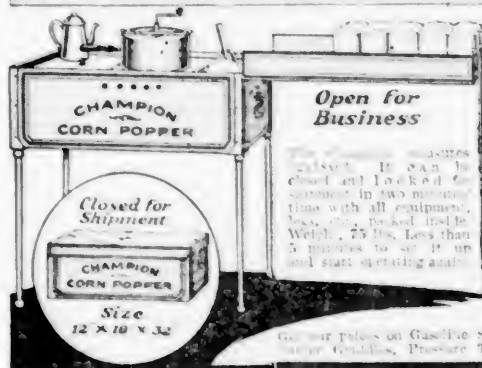 CHAMPION
CORN POPPER
Open for
Business
measures
It can be
closed and locked for
shipment in two minutes
time with all equipment,
packed inside.
Weight 75 lbs. Less than
5 minutes to set it up
and start operating again.
Closed for
Shipment
CHAMPION
CORN POPPER
Size
12 X 18 X 32
Get our prices on Gasoline
Griddles, Pressure